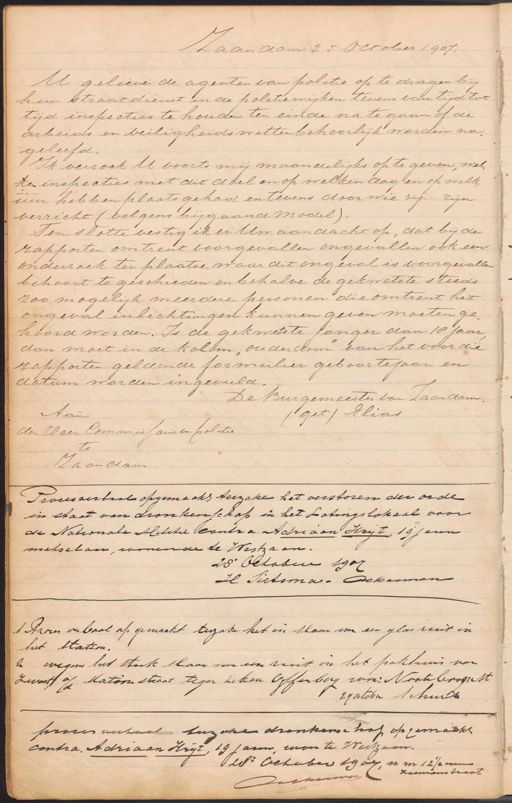 Zaandam 25 October 1907
U gelieve de agenten van politie op te dragen bij
hun straatdienst in de politiewijken tevens van tijd tot
tijd inspecties te houden ten einde na te gaan of de
arbeids en veiligheidswetten behoorlijk worden na
geleefd.
Ik verzoek U voorts mij maandelijks op te geven, wel
ke inspecties met dit doel en op welken dag en op welk
uur hebben plaats gehad en tevens door wie zij zijn
verricht (volgens bijgaand model).
Ten slotte vestig ik er Uw aandacht op, dat bij de
rapporten omtrent voorgevallen ongevallen ook een
onderzoek ter plaatse, waar dit ongeval is voorgevallen
behoort te geschieden en behalve de gekwetste steeds
zoo mogelijk meerdere personen die omtrent het
ongeval inlichtingen kunnen geven moeten ge
hoord worden. Is de gekwetste jonger dan 18 jaar,
dan moet in de kolom "ouderdom" van het voor die
rapporten geldende formulier geboortejaar en
datum worden ingevuld.
De Burgemeester van Zaandam.
(get) Elias
Aan
den Heer Commissaris van politie
te
Zaandam
Proces verbaal opgemaakt terzake het verstoren der orde
in staat van dronkenschap in het Lotingslokaal voor
de Nationale Militie contra Adriaan Krijt, 19 jaren
metselaar, wonende te Westzaan.
28 October 1907
H Pietsma. Ackerman
1 Proces verbaal op gemaakt terzake het in slaan van een glas ruit in
het station.
2 wegens het stuk slaan van een ruit in het pakhuis van
o/d Stationstraat tegen
proces verbaal terzake dronkenschap opgemaakt
contra Adriaan Krijt, 19 jaren, won te Westzaan.
28 October 1907, n m 12 1/2 uren
Ackerman